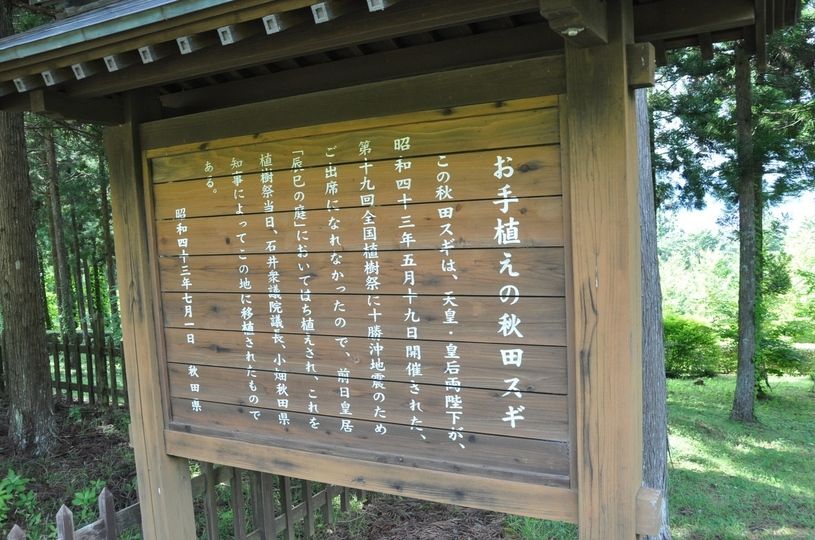 お手植えの秋田スギ
この秋田スギは、天皇・皇后両陛下が、
昭和四十三年五月十九日開催された、
第十九回全国植樹祭に十勝沖地震のため
ご出席になれなかったので、前日皇居
「辰巳の庭」においてはち植えされ、これを
植樹祭当日、石井衆議院議長、小畑秋田県
知事によってこの地に移植されたもので
ある。
昭和四十三年七月一日　秋田県